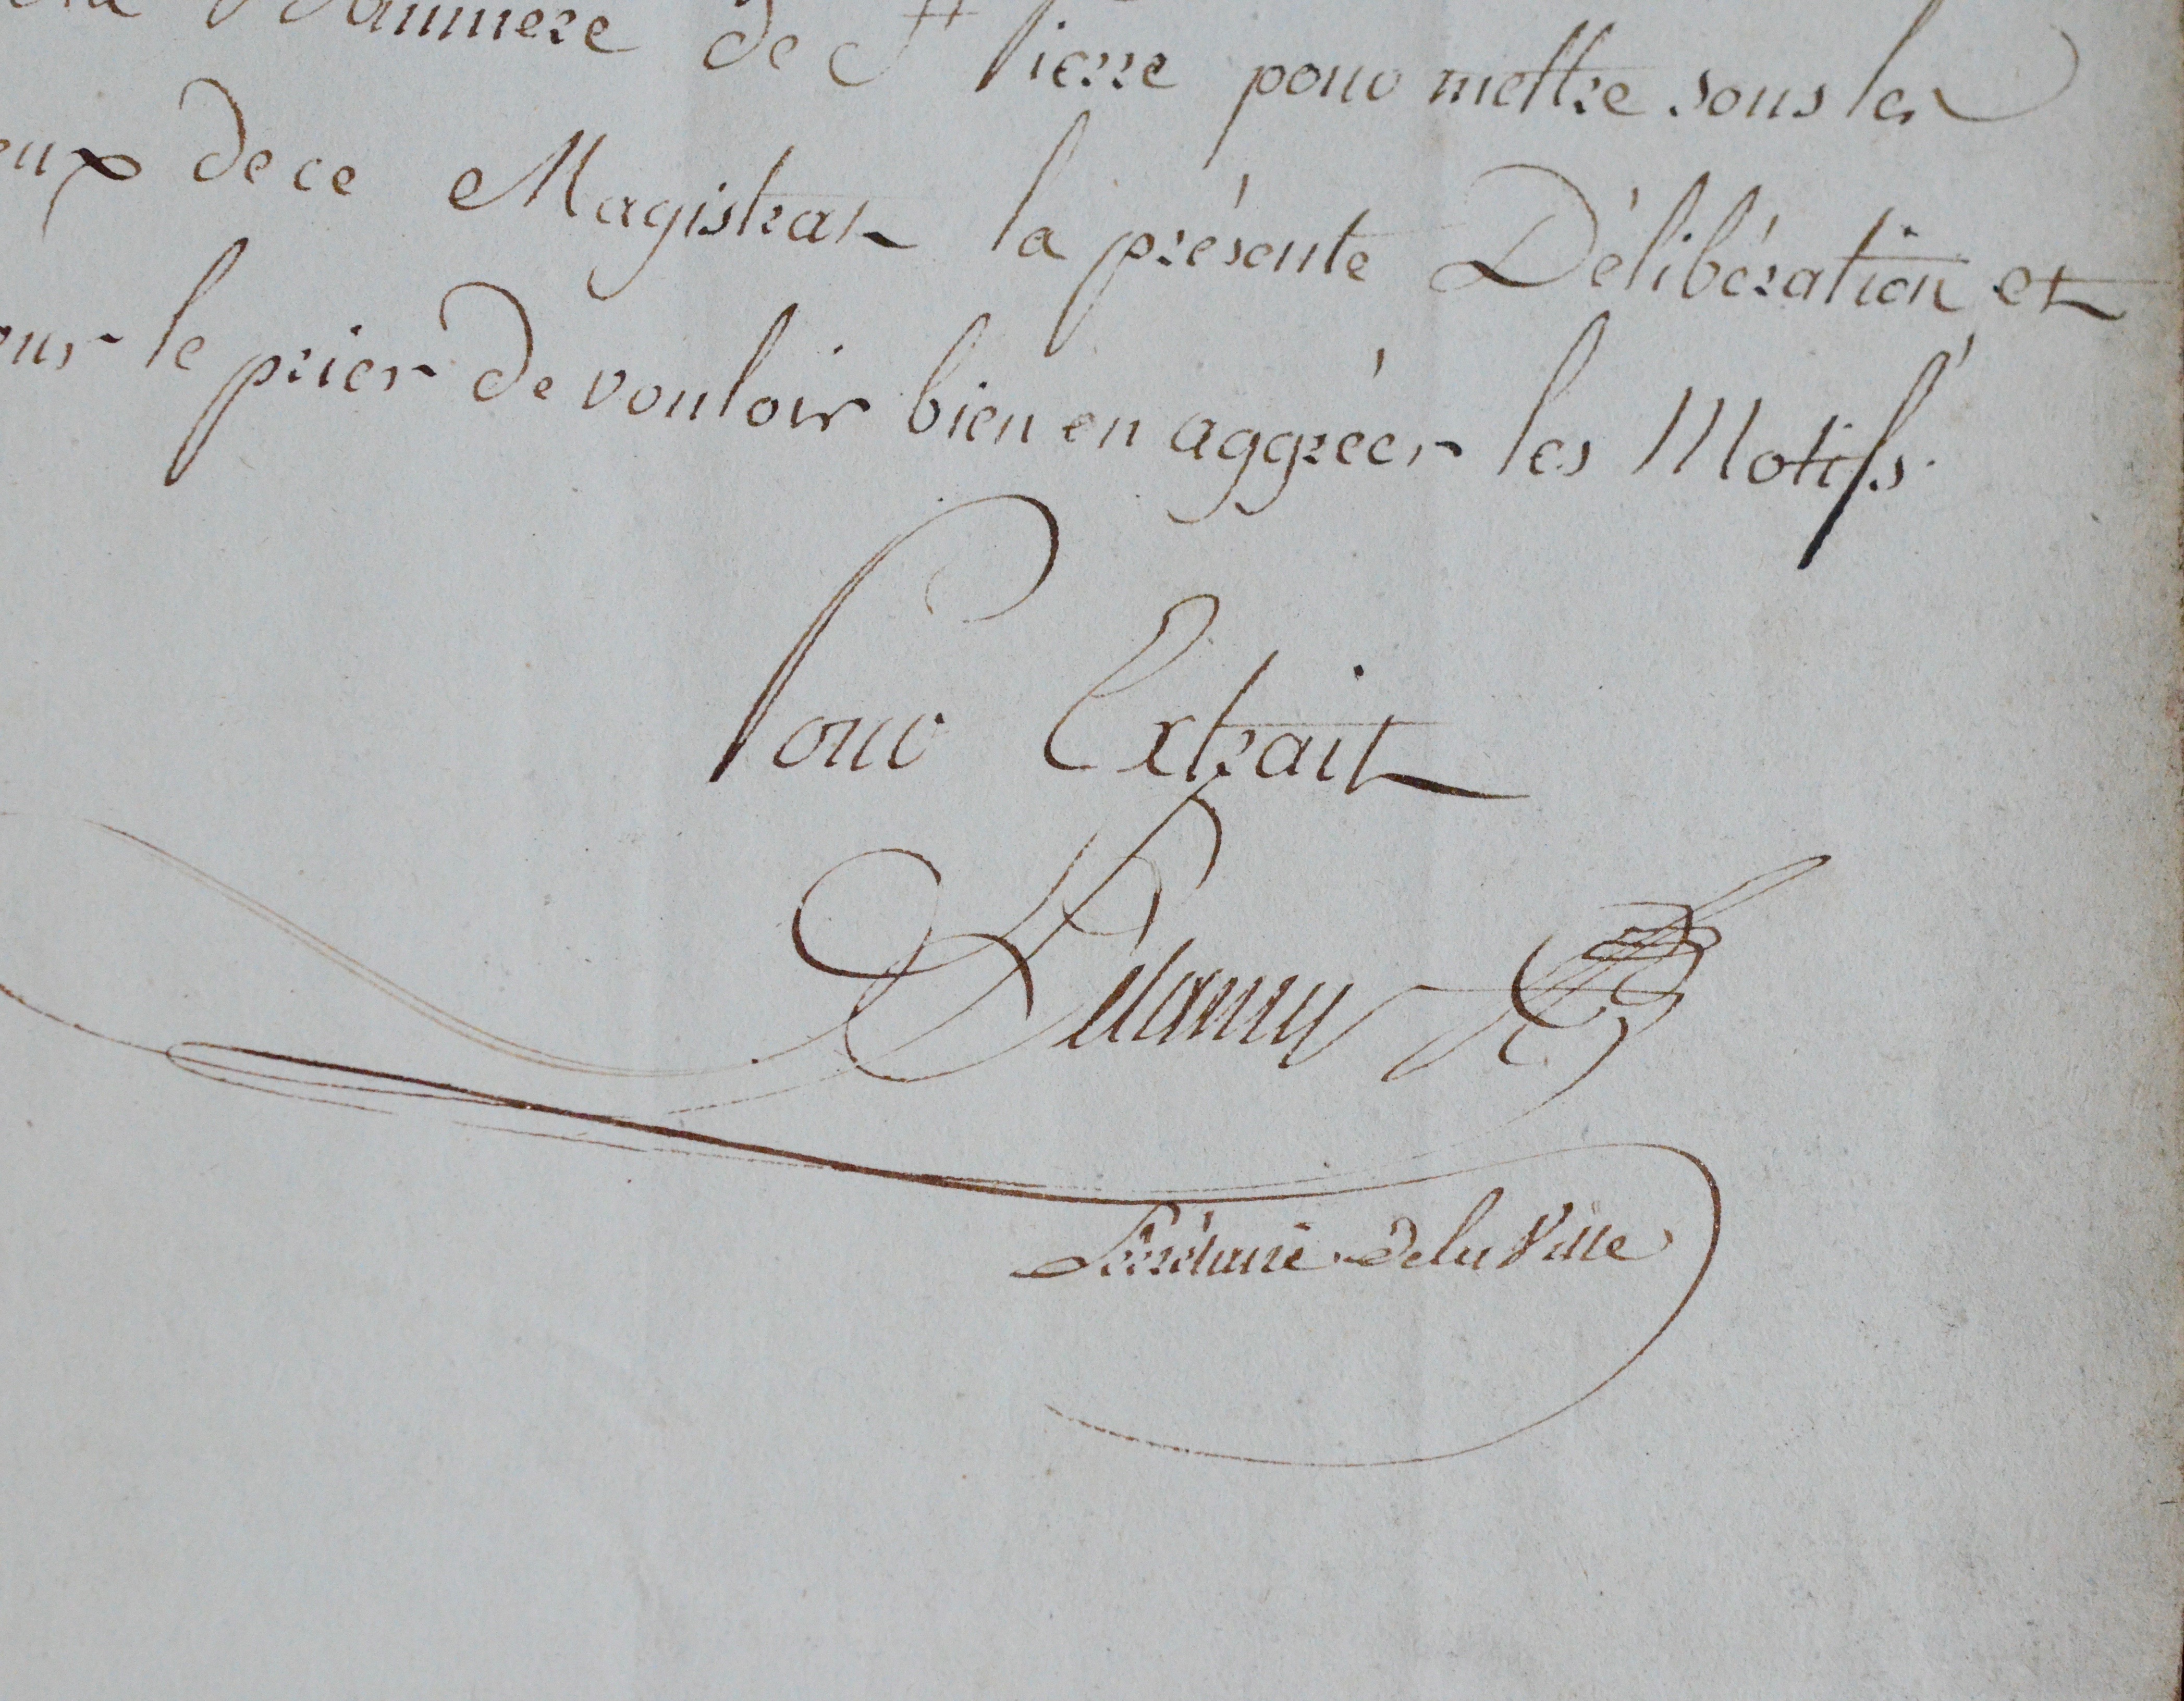 de St Pierre pour mettre sous les
eux de ce Magistrat la présente Délibération et
our le prier de vouloir bien en aggréer les Motifs.
Pour Extrait
Secrétaire de la Ville